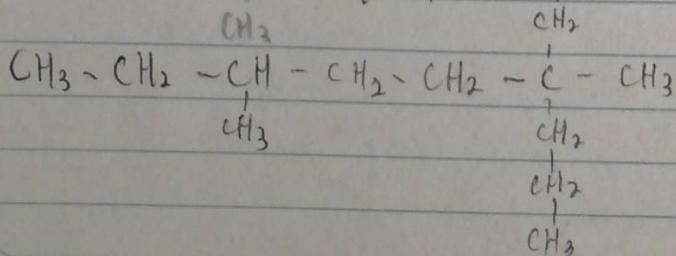 CH3 CH2
CH3 - CH2 - CH - CH2 - CH2 - C - CH3
CH3 CH2
CH2
CH3